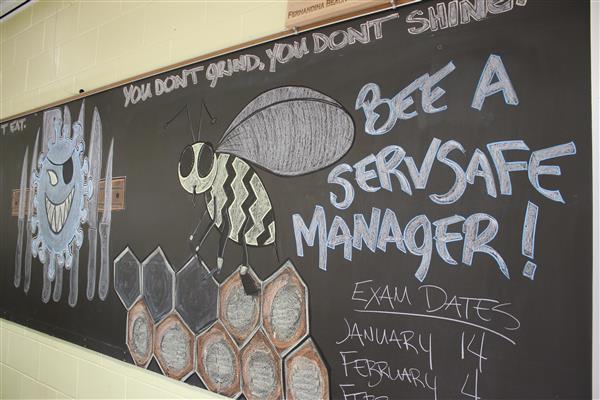 FERNANDINA BEACH
T EAT.
YOU DON'T GRIND, YOU DON'T SHINE.
BEE A
SERVSAFE
MANAGER!
EXAM DATES
JANUARY 14
FEBRUARY 4